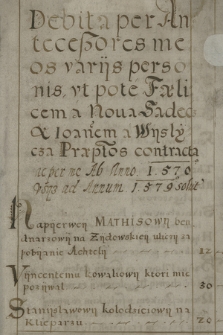 Debita per An
tecessores me
os varijs perso
nis, vt pote Fæli
cem a Noua Sadec
& Ioanem a Wysly
csa Præptos contracta
ac per me Ab Anno 1.576
ad Annum 1.579 solut
Napierwey MATHISOWJ bed
narzowj na Zydowskiey ulicy za
pobijanie Achtely 12
Vincentemu kowalkowj ktori mie
pozywal 30
Stanislawowj kolodzieiowj na
Kleparzu 20